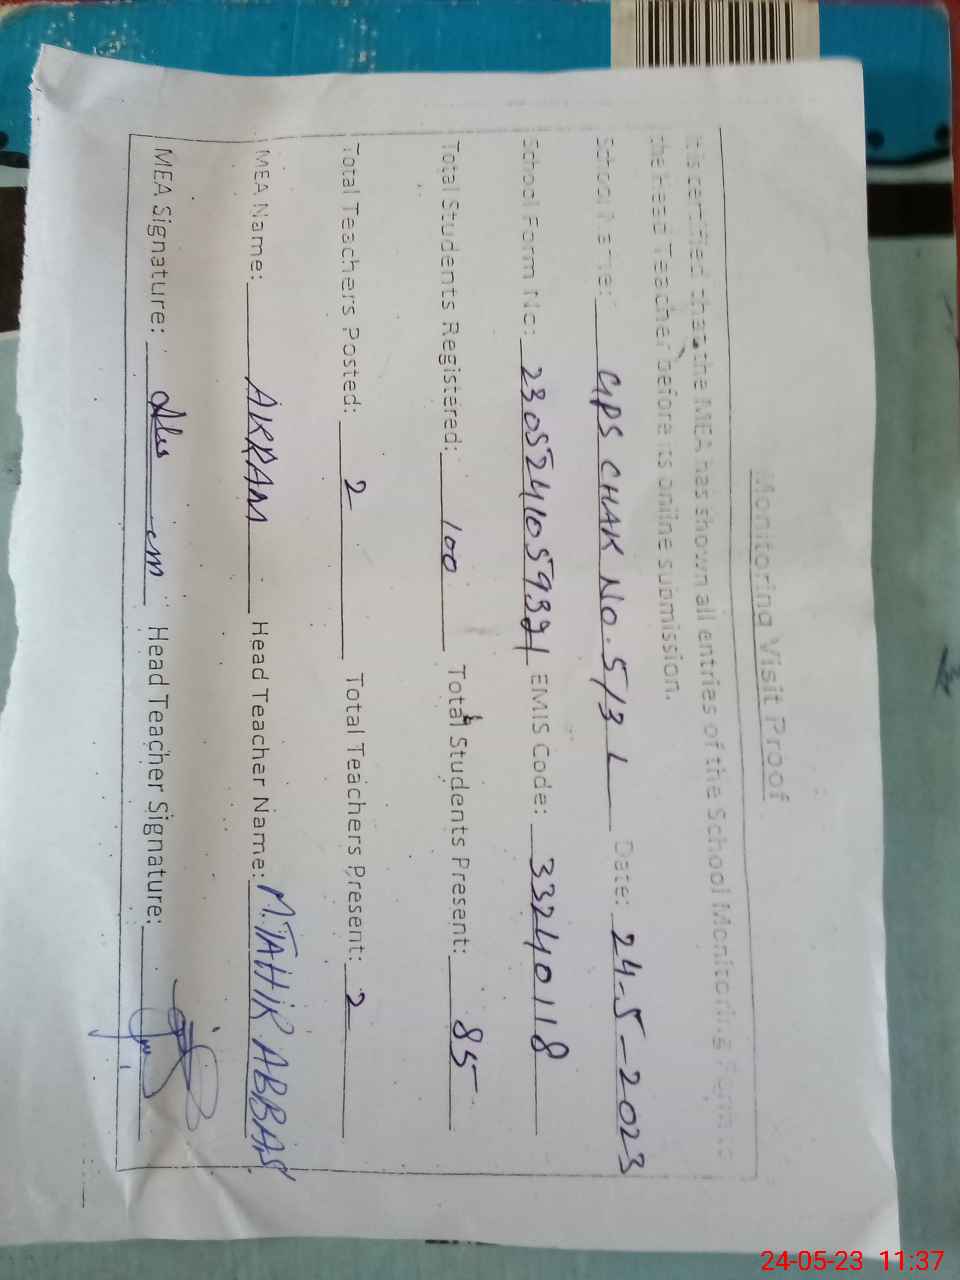 Monitoring Visit Proof
It is certified that the MEA has shown all entries of the School Monitoring Form to
the Head Teacher before its online submission.
School Name: GPS CHAK NO. 5/3 L Date: 24-5-2023
School Form No: 23052410593 EMIS Code: 33240118
Total Students Registered: 100 Total Students Present: 85
Total Teachers Posted: 2 Total Teachers Present: 2
MEA Name: AKRAM Head Teacher Name: M. TAHIR ABBAS
MEA Signature: Head Teacher Signature:
24-05-23 11:37